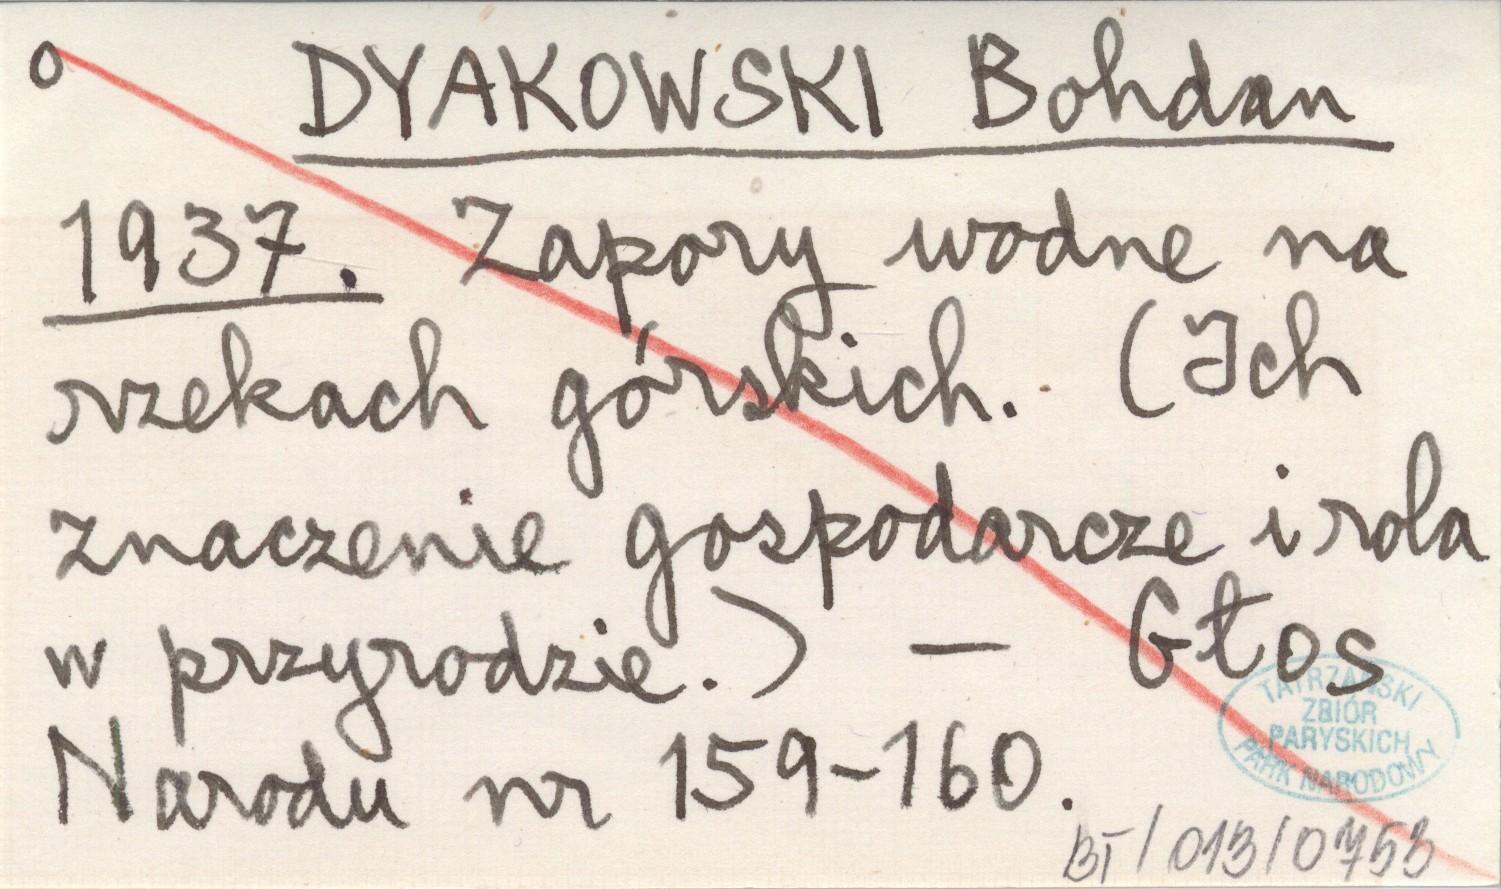 o DYAKOWSKI Bohdan
1937. Zapory wodne na
rzekach górskich. (Ich
znaczenie gospodarcze i rola
w przyrodzie.) — Głos
Narodu nr 159-160.
TATRZAŃSKI
ZBIÓR
PARYSKICH
PARK NARODOWY
BT/013/0753